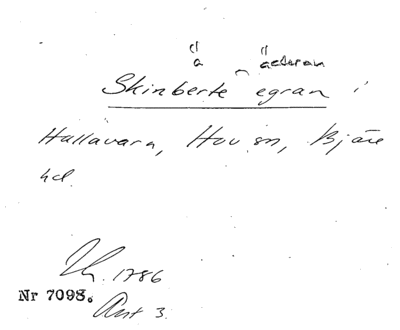 ä äckran
Skinberte egran i
Hallavara, Hov sn, Bjäre
hd.
1786
Nr 7098.
Ant 3.